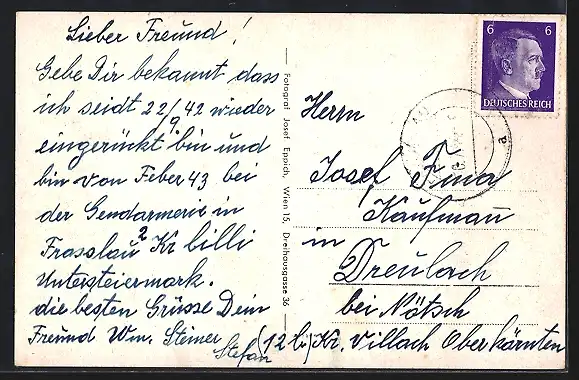 Lieber Freund!
Gebe Dir bekannt dass
ich seidt 22/9. 42 wieder
eingerückt bin und
bin von Feber 43 bei
der Gendarmerie in
Frasslau 2 Kr Cilli
Untersteiermark.
die besten Grüsse Dein
Freund Wm. Steiner
Stefan
Fotograf Josef Eppich, Wien 15, Dreihausgasse 36
6 6
DEUTSCHES REICH
a
Herrn
Josef Fina
Kaufmau
in
Dreulach
bei Nötsch
(12 b) Kr. Villach Oberkärnten